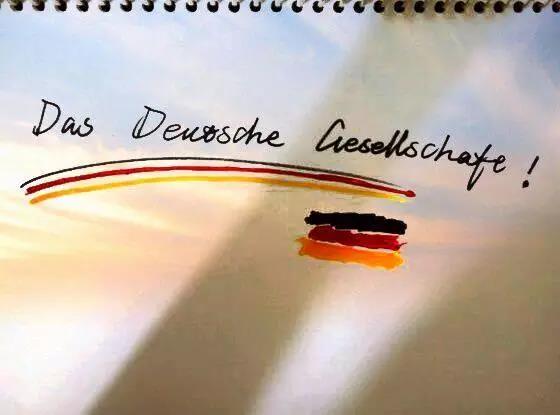 Das Deutsche Gesellschaft!